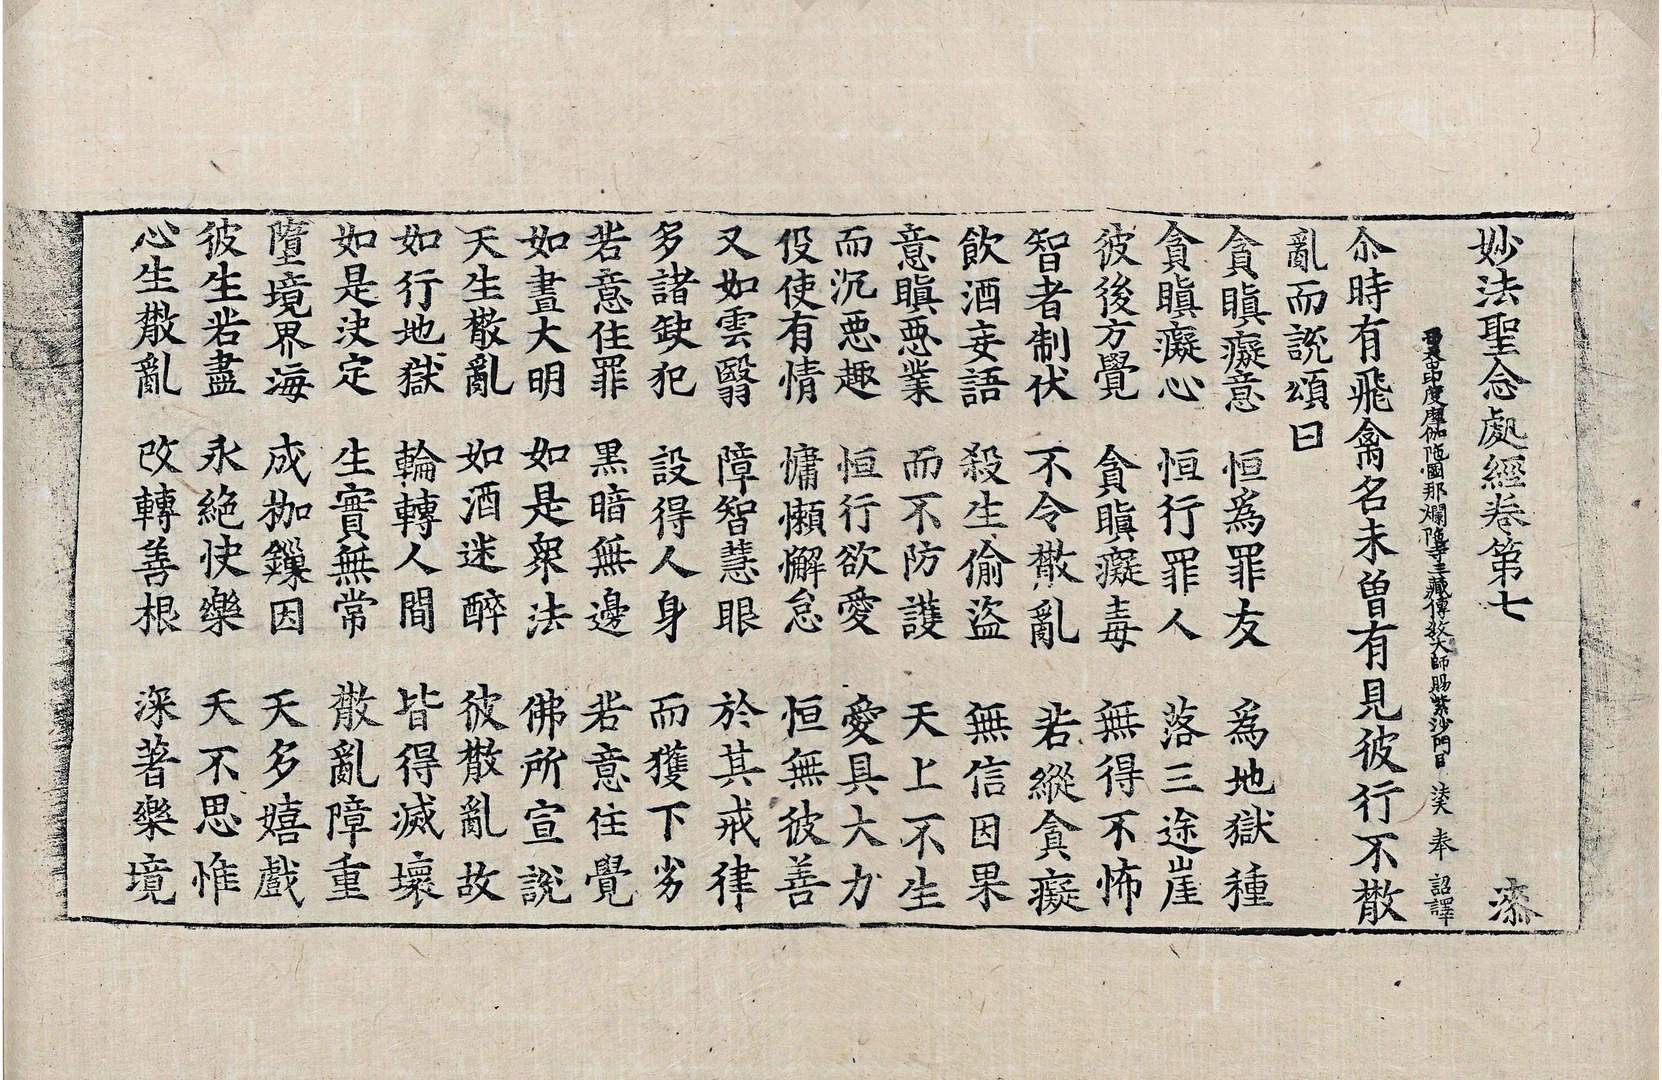 妙法聖念處經卷第七 漆
印度摩伽陁國那爛陁寺三藏傳教大師賜紫沙門臣 法天 奉 詔譯
尒時有飛禽名未曽有見彼行不散
亂而說頌曰
貪瞋癡意 恒爲罪友 爲地獄種
貪瞋癡心 恒行罪人 落三途崖
彼後方覺 貪瞋癡毒 無得不怖
智者制伏 不令散亂 若縱貪癡
飲酒妄語 殺生偷盜 無信因果
意瞋惡業 而不防護 天上不生
而沉惡趣 恒行欲愛 愛具大力
役使有情 慵懶懈怠 恒無彼善
又如雲翳 障智慧眼 於其戒律
多諸缺犯 設得人身 而獲下劣
若意住罪 黑暗無邊 若意住覺
如晝大明 如是衆法 佛所宣說
天生散亂 如酒迷醉 彼散亂故
如行地獄 輪轉人間 皆得滅壞
如是決定 生實無常 散亂障重
墮境界海 成枷鏁因 天多嬉戲
彼生若盡 永絕快樂 天不思惟
心生散亂 改轉善根 深著樂境